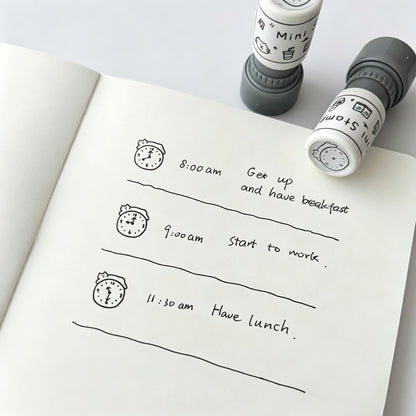 Mini S
ni Stamp
8:00 am Get up
and have breakfast
9:00 am Start to work.
11:30 am Have lunch.